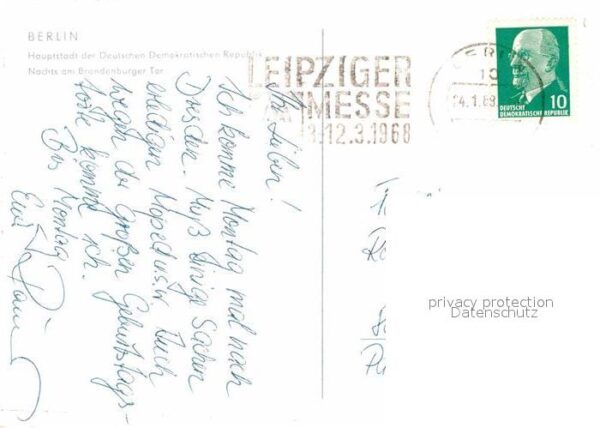 BERLIN
Hauptstadt der Deutschen Demokratischen Republik
Nachts am Brandenburger Tor
LEIPZIGER
MESSE
12.3.1968
BERLIN
10
24.1.68
DEUTSCHE
DEMOKRATISCHE REPUBLIK
10
Ihr Lieben!
Ich komme Montag mal nach
Dresden. Muß einige Sachen
erledigen. Auch
wegen der großen Geburtstags-
torte komme ich.
Bis Montag
Euer
privacy protection
Datenschutz